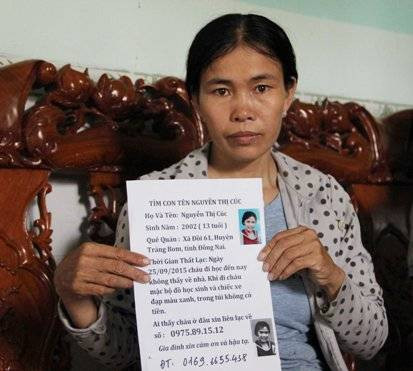 TÌM CON TÊN NGUYỄN THỊ CÚC
Họ Và Tên: Nguyễn Thị Cúc
Sinh Năm : 2002 ( 13 tuổi )
Quê Quán : Xã Đồi 61, Huyện
Trảng Bom, tỉnh Đồng Nai.
Thời Gian Thất Lạc: Ngày
25/09/2015 cháu đi học đến nay
không thấy về nhà. Khi đi cháu
mặc bộ đồ học sinh và chiếc xe
đạp màu xanh, trong túi không có
tiền.
Ai thấy cháu ở đâu xin liên lạc về
số : 0975.89.15.12
Gia đình xin cảm ơn và hậu tạ.
ĐT: 0169.6655.438